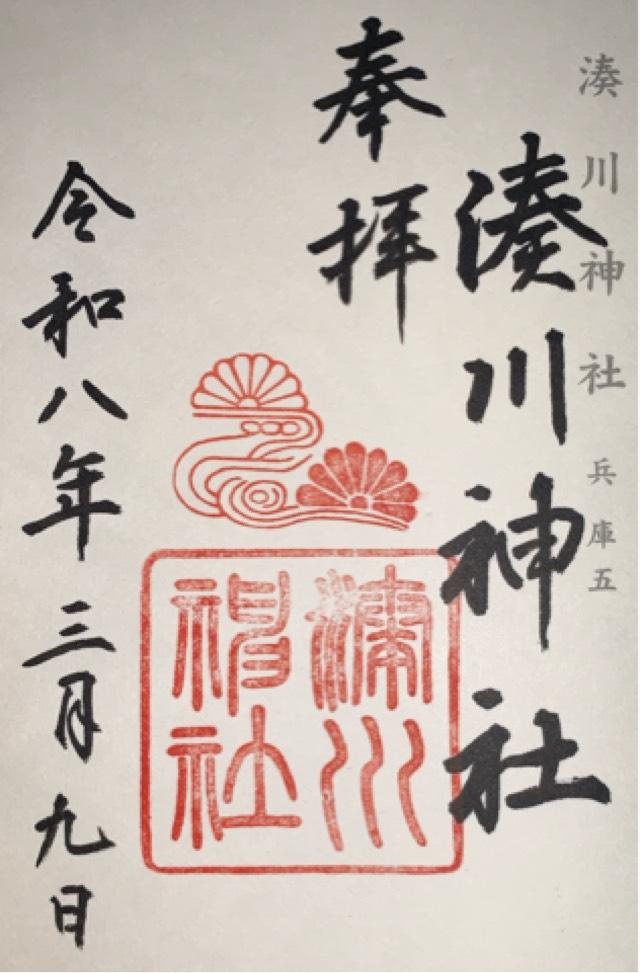 湊川神社 兵庫五
奉拝
湊川神社
湊川神社
令和八年三月九日